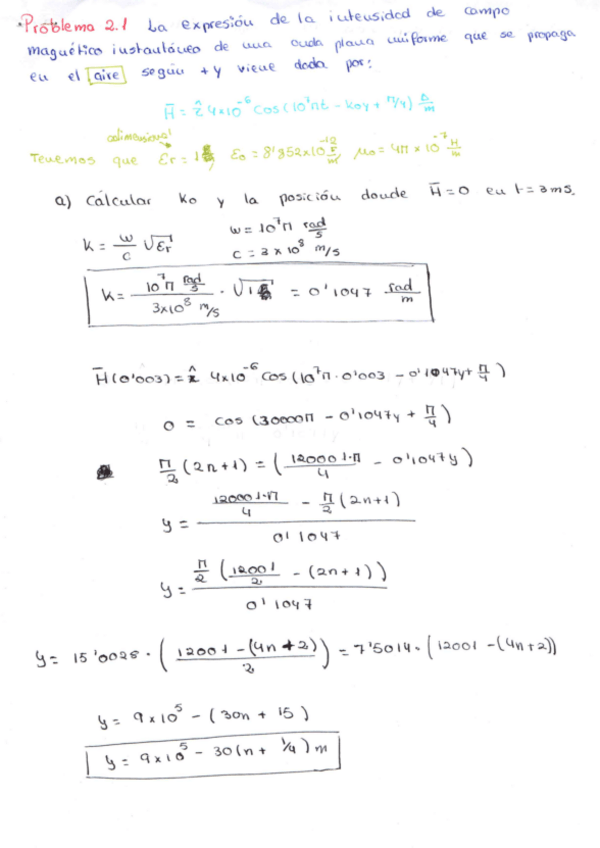 ·Problema 2.1 La expresión de la intensidad de campo
magnético instantáneo de una onda plana uniforme que se propaga
en el aire según +y viene dada por:
H̄ = ẑ 4×10⁻⁶ cos(10⁷πt - k₀y + π/4) A/m
adimensional
Tenemos que εr = 1, ε₀ = 8'852×10⁻¹² F/m, μ₀ = 4π × 10⁻⁷ H/m
a) Cálcular k₀ y la posición donde H̄ = 0 en t = 3ms.
k = w/c √εr    w = 10⁷π rad/s
c = 3 × 10⁸ m/s
k = (10⁷π rad/s)/(3×10⁸ m/s) · √1 = 0'1047 rad/m
H̄(0'003) = ẑ 4×10⁻⁶ cos(10⁷π·0'003 - 0'1047y + π/4)
0 = cos(30000π - 0'1047y + π/4)
π/2 (2n+1) = (120001·π/4 - 0'1047y)
y = (120001·π/4 - π/2 (2n+1))/0'1047
y = (π/2 (12001/2 - (2n+1)))/0'1047
y = 15'0028 · ((12001 - (4n+2))/2) = 7'5014 · (12001 - (4n+2))
y = 9×10⁵ - (30n + 15)
y = 9×10⁵ - 30(n + 1/4) m